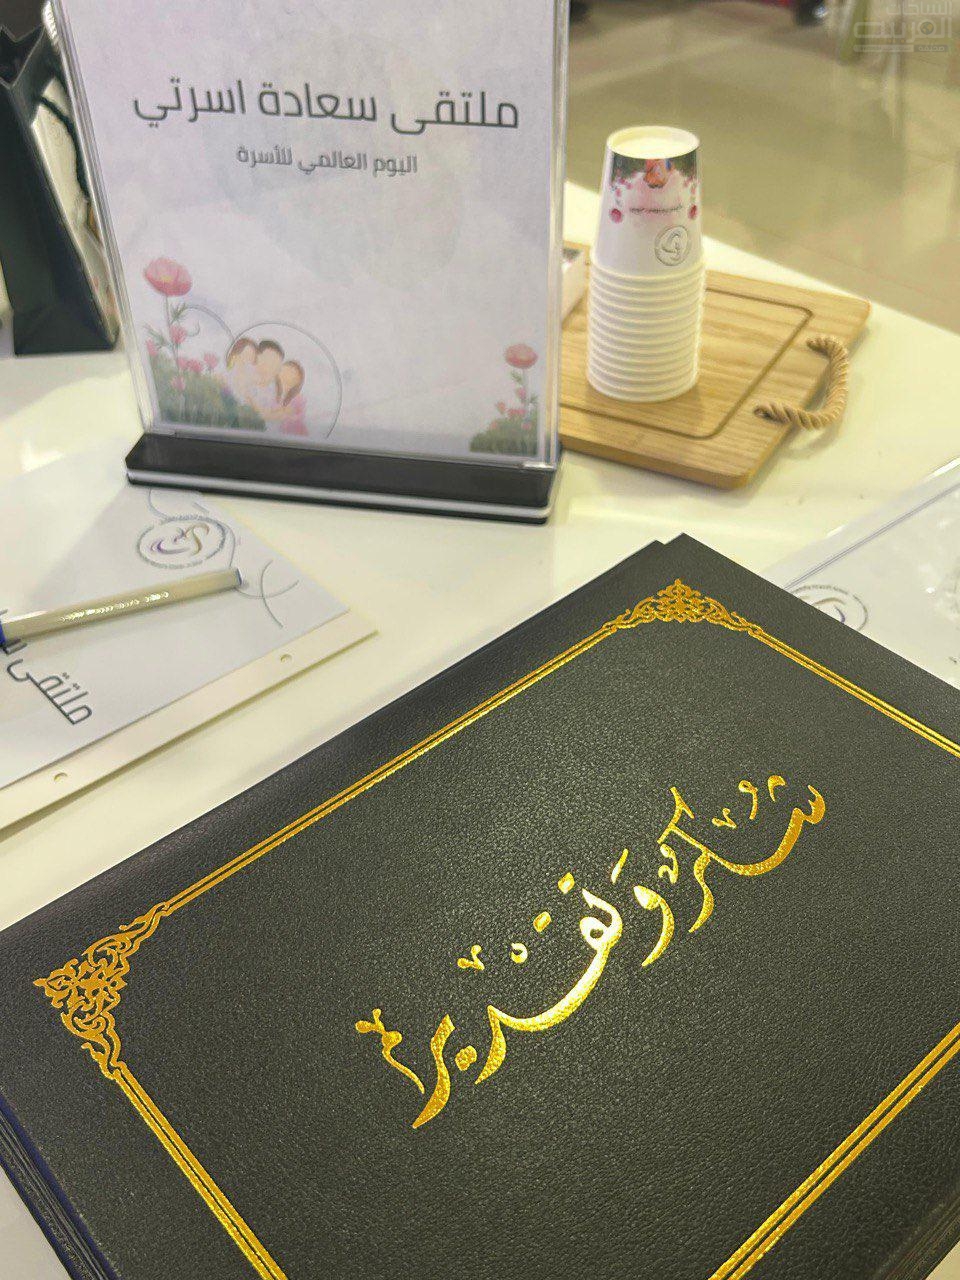 ملتقى سعادة اسرتي
اليوم العالمي للأسرة
ملتقى
شكر وتقدير